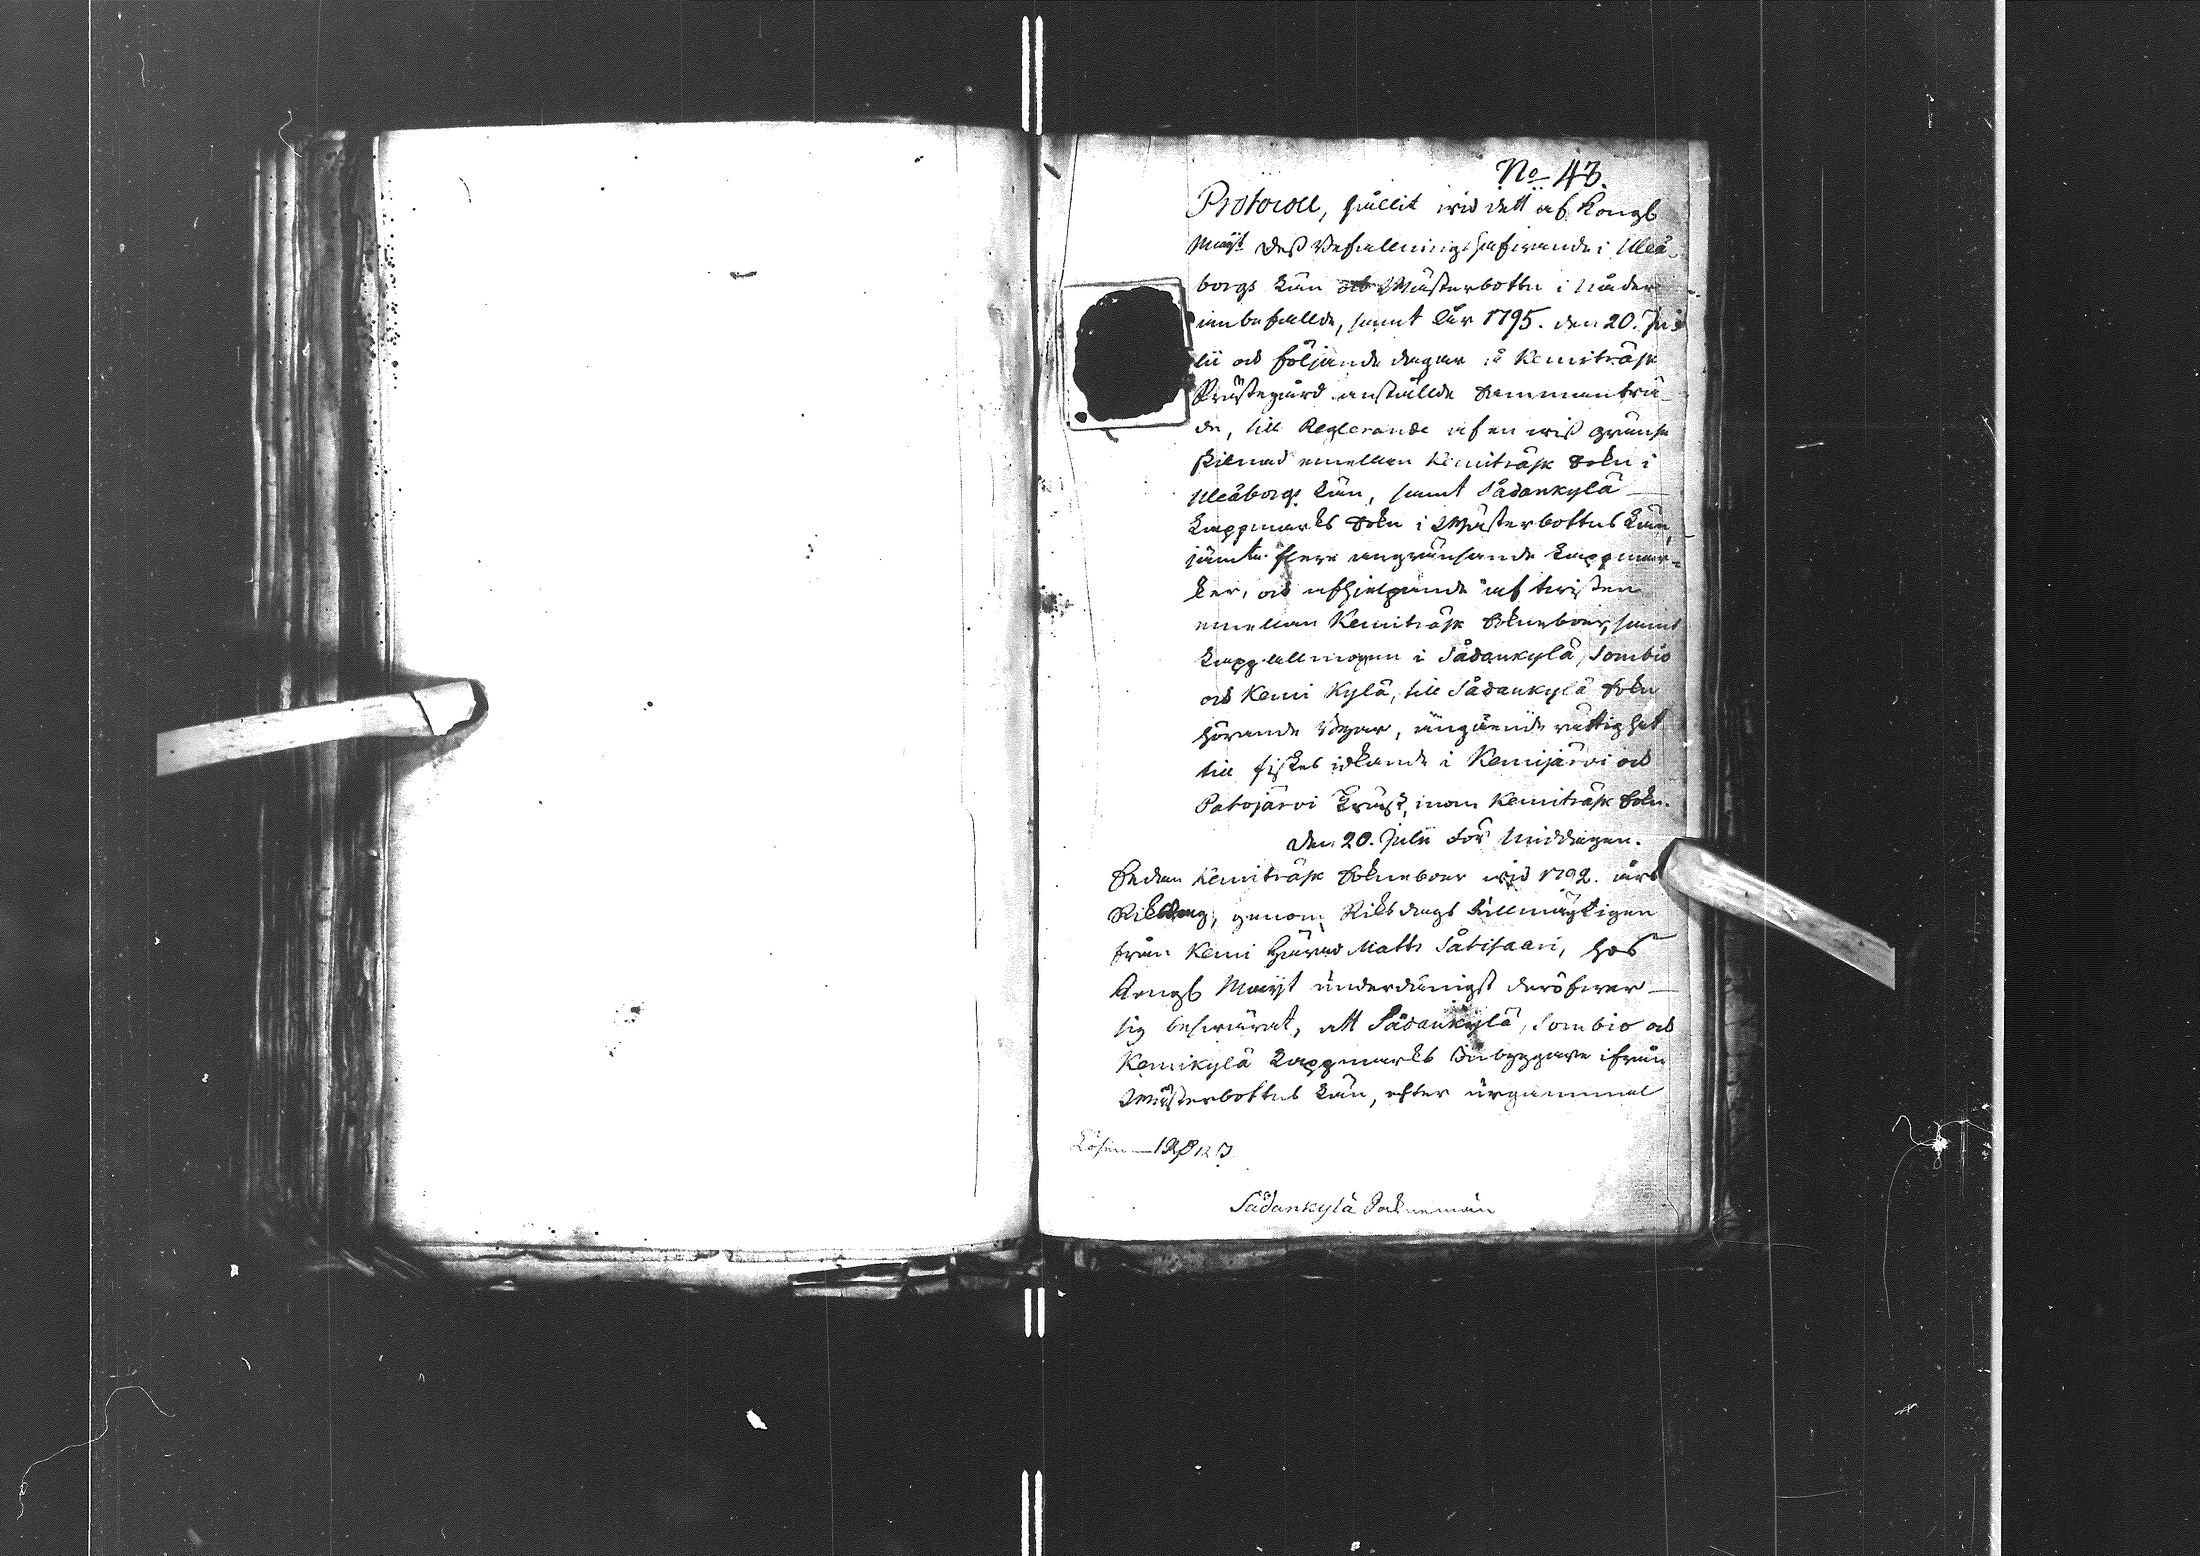 No 43.
Protocoll, hållit wid dett af Kongl
Maijt Dess Befallningshafwande i Uleå-
borgs Län och Wästerbotn i Nåder
anbefallde, samt Åhr 1795. den 20. Ju-
lii och följande dagar å Kemiträsk
Prästegård anstållde Sammanträ-
de, till Reglerande af en wiss gränse
skilnad emellan Kemiträsk Sokn i
Uleåborgs Län, samt Sådankylä
Lappmarks Sokn i Wästerbottns Län,
jämte flere angränsande Lappmar-
ker, och afhjelpande af twisten
emellan Kemiträsk Sokneboer, samt
Lapp allmogen i Sådankylä, Sombio
och Kemi Kylä, till Sådankylä Sokn
hörande Byar, angående rättighet
till fiskes idkande i Kemijärvi och
Patojärvi Träsk, inom Kemiträsk Sokn.
Den 20. Julii för Middagen.
Sedan Kemiträsk Sokneboer wid 1792. års
Riksdag, genom Riksdags fullmägtigen
från Kemi Härad Matts Såtisaari, hos
Kongl Maijt underdånigst deröfwer
sig beswärat, att Sådankylä, Sombio och
Kemikylä Lappmarks Inbyggare ifrån
Wästerbottns Län, efter urgammal
Lösen
Sådankylä Soknemän